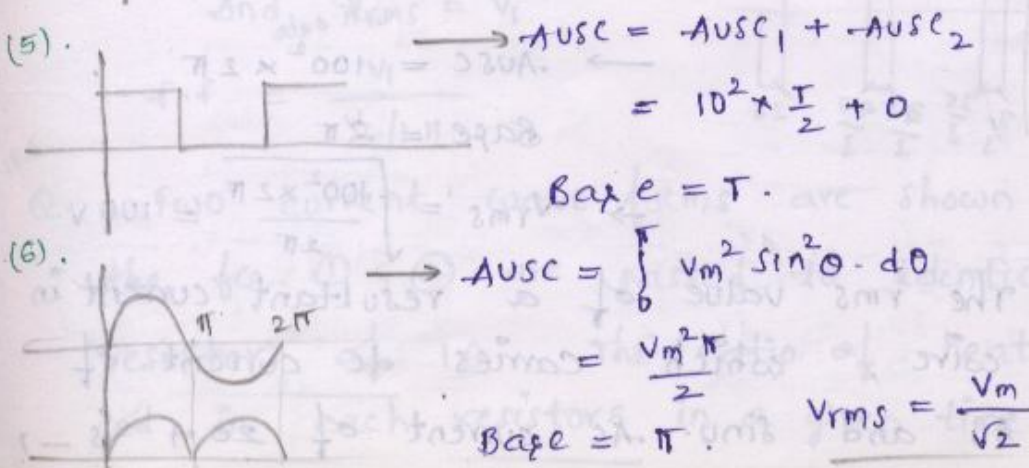 (5). → AUSC = AUSC₁ + AUSC₂
= 10² × T/2 + 0
Base = T.
(6). → AUSC = ∫₀^π Vm² sin²θ · dθ
π 2π
= Vm² π / 2
Base = π. Vrms = Vm / √2